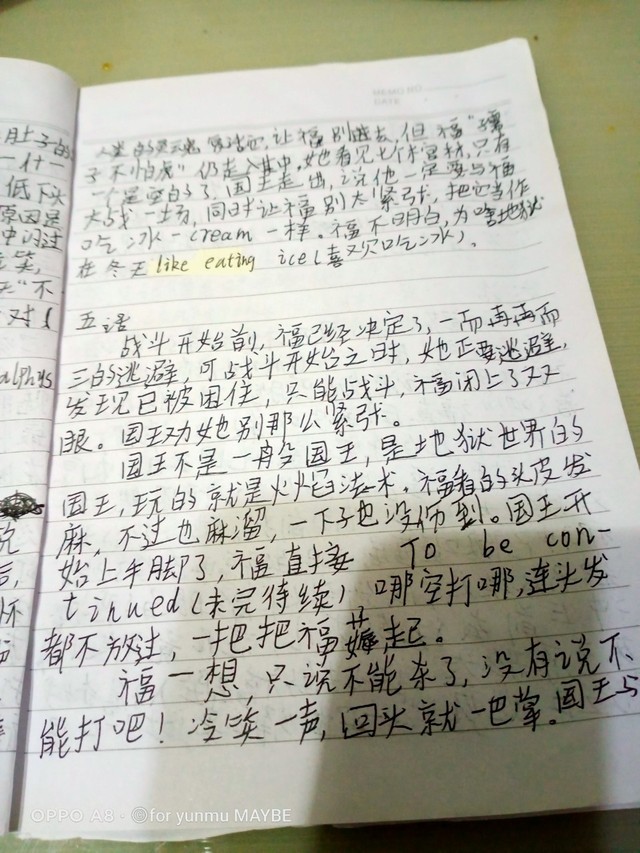 肚子的
一什一
低下头
原因是
笑,
天"不
对!
alphys
人类的灵魂 让福别进去,但福"
子不怕虎"仍走入其中。她看见七个棺材,只有
一个是空的了,国王走出,说他一定要与福
大战一场,同时让福别太紧张,把它当作
吃冰-cream一样。福不明白,为啥地狱
在冬天like eating ice(喜欢吃冰)。
五话
战斗开始前,福已经决定了,一而再再而
三的逃避,可战斗开始之时,她正要逃避,
发现已被困住,只能战斗,福闭上了双
眼。国王劝她别那么紧张。
国王不是一般国王,是地狱世界的
国王,玩的就是火焰法术。福看的头皮发
麻,不过也麻溜,一下子也没伤到。国王开
始上手脚了,福直接 To be con-
tinued(未完待续)哪空打哪,连头发
都不放过,一把把福薅起。
福一想,只说不能杀了,没有说不
能打吧!冷笑一声,回头就一巴掌。国王与
OPPO A8 · ©for yunmu MAYBE